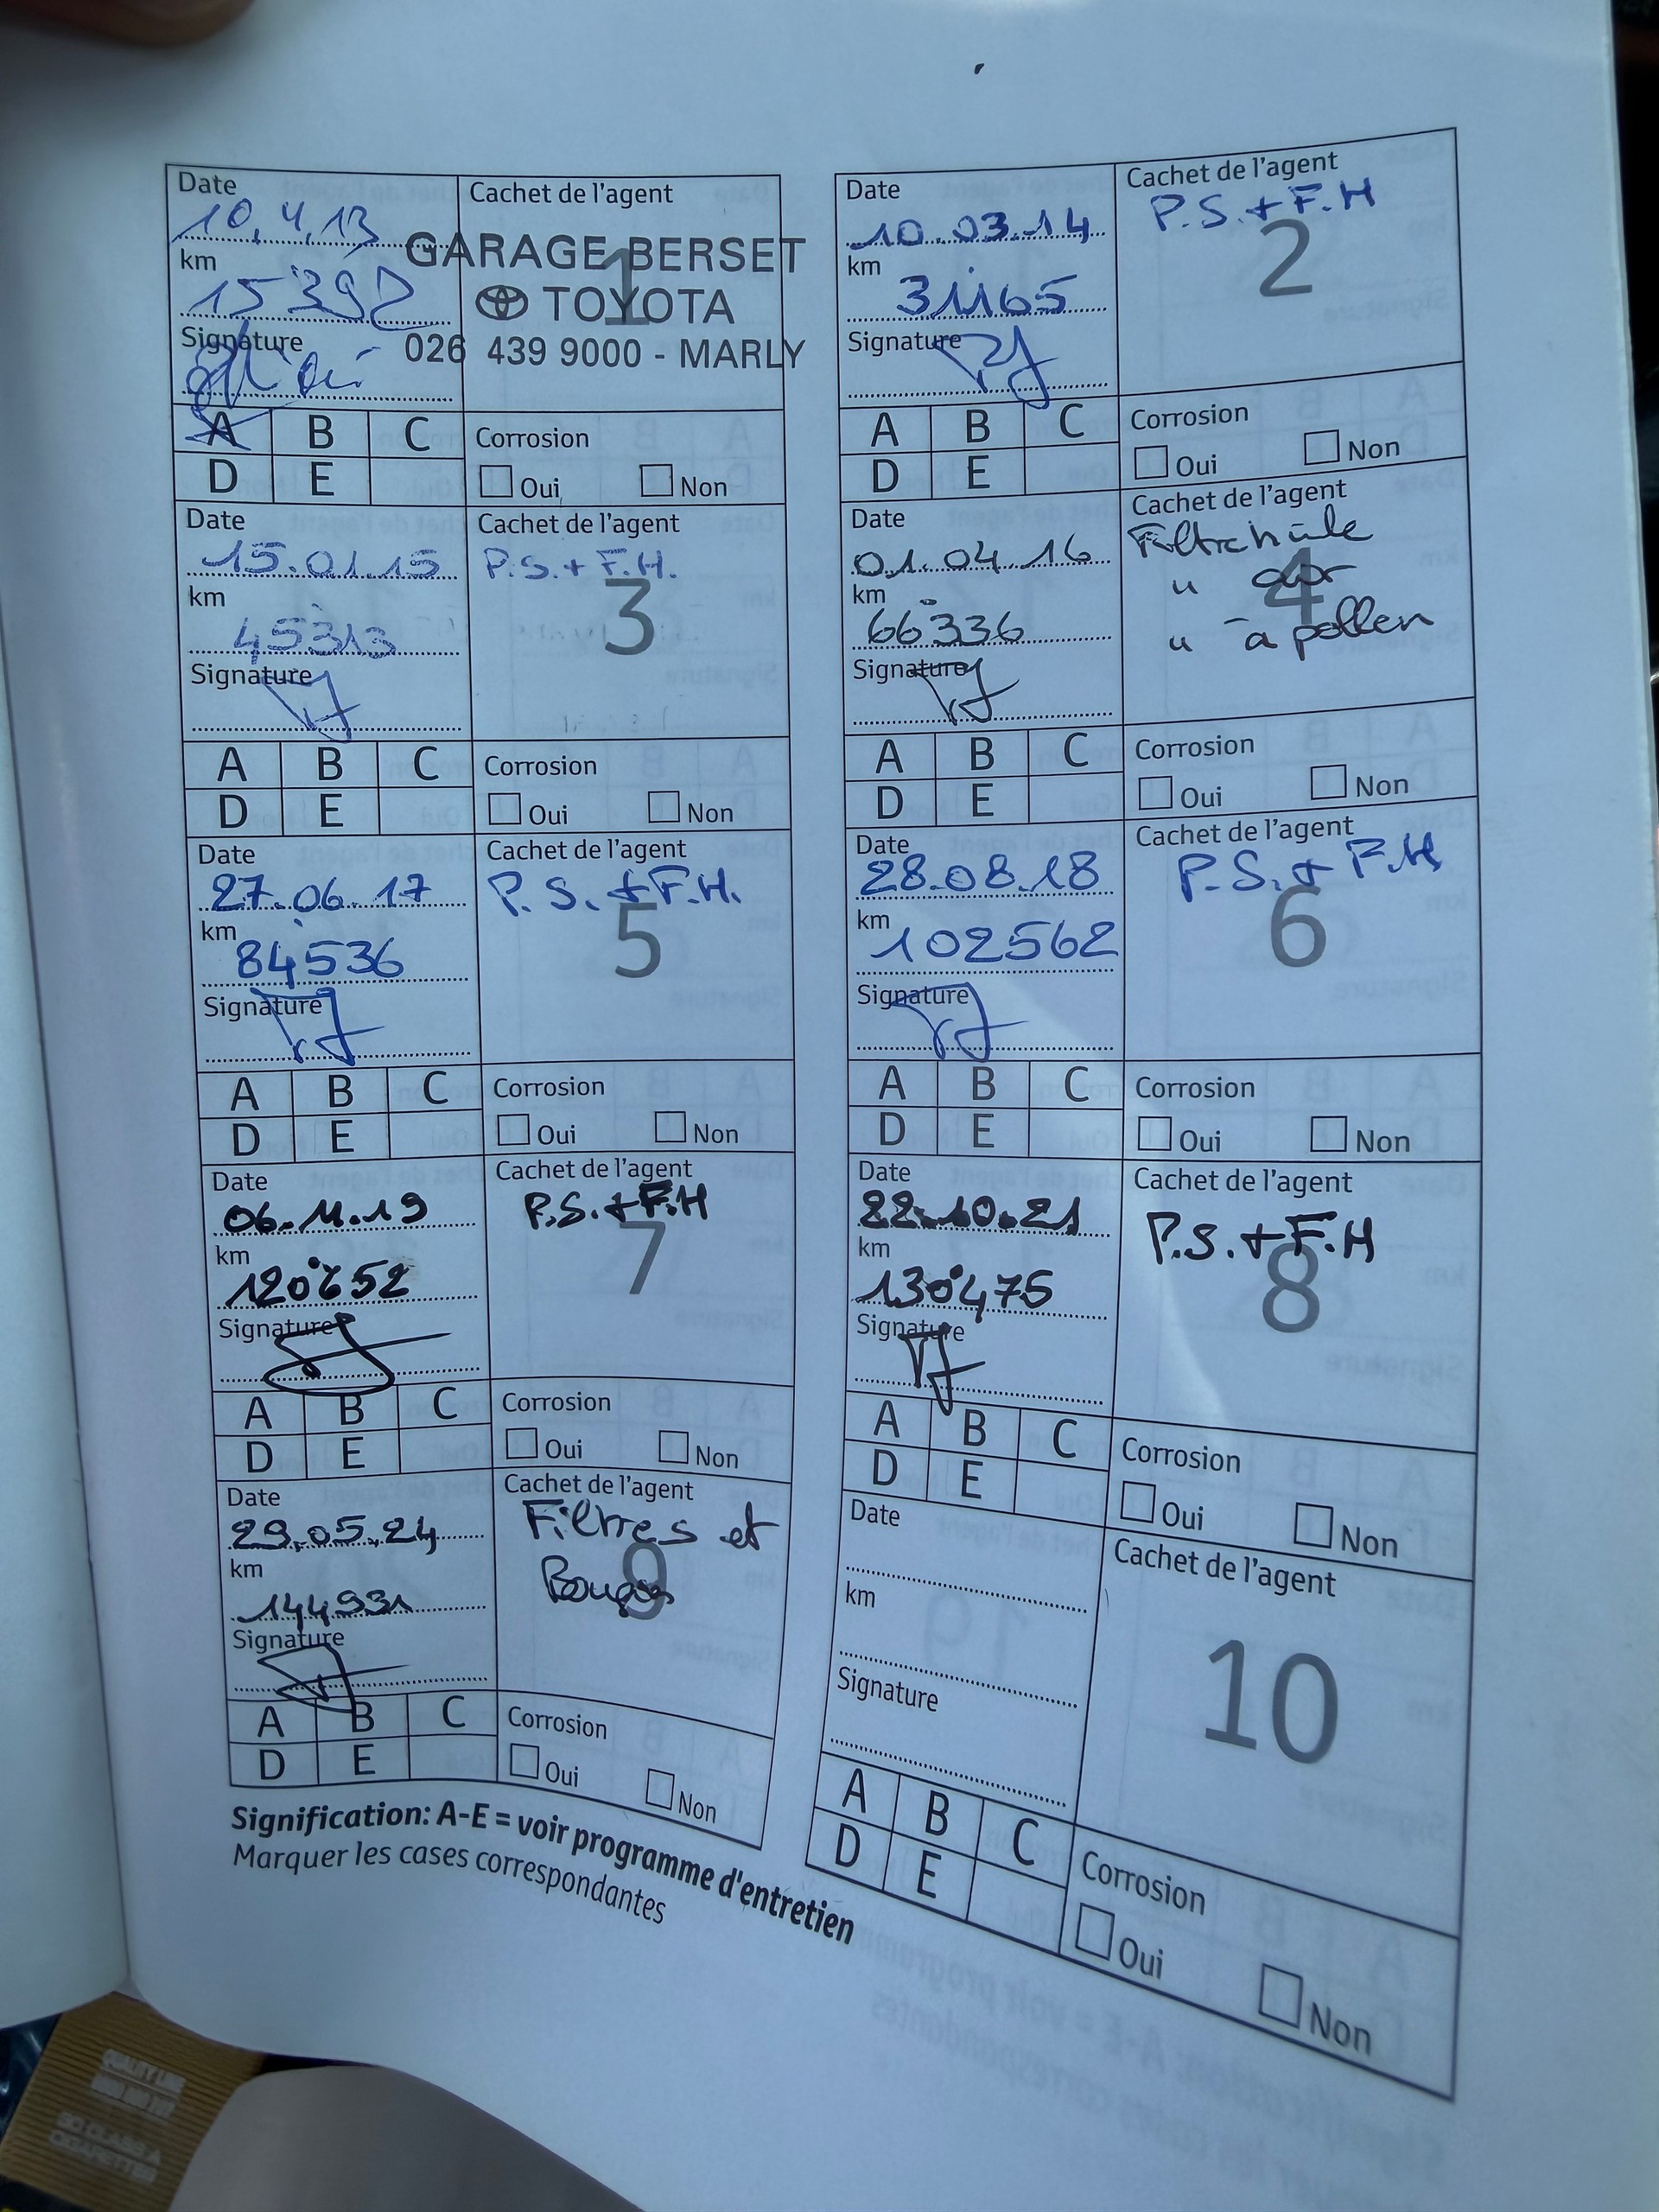 Date
10.4.13
km
15392
Signature
Cachet de l'agent
1
GARAGE BERSET
TOYOTA
026 439 9000 - MARLY
A B C
D E
Corrosion
Oui Non
Date
10.03.14
km
31165
Signature
Cachet de l'agent
P.S.+F.H
2
A B C
D E
Corrosion
Oui Non
Date
15.01.15
km
45313
Signature
Cachet de l'agent
P.S.+F.H.
3
A B C
D E
Corrosion
Oui Non
Date
01.04.16
km
66336
Signature
Cachet de l'agent
Filtre huile
" air
" à pollen
4
A B C
D E
Corrosion
Oui Non
Date
27.06.17
km
84536
Signature
Cachet de l'agent
P.S.+F.H.
5
A B C
D E
Corrosion
Oui Non
Date
28.08.18
km
102562
Signature
Cachet de l'agent
P.S.+F.H
6
A B C
D E
Corrosion
Oui Non
Date
06.11.19
km
Signature
Cachet de l'agent
P.S.+F.H
7
A B C
D E
Corrosion
Oui Non
Date
22.10.21
km
130'475
Signature
Cachet de l'agent
P.S.+F.H
8
A B C
D E
Corrosion
Oui Non
Date
29.05.24
km
144931
Signature
Cachet de l'agent
Filtres et
9
A B C
D E
Corrosion
Oui Non
Date
km
Signature
Cachet de l'agent
10
A B C
D E
Corrosion
Oui Non
Signification: A-E = voir programme d'entretien
Marquer les cases correspondantes